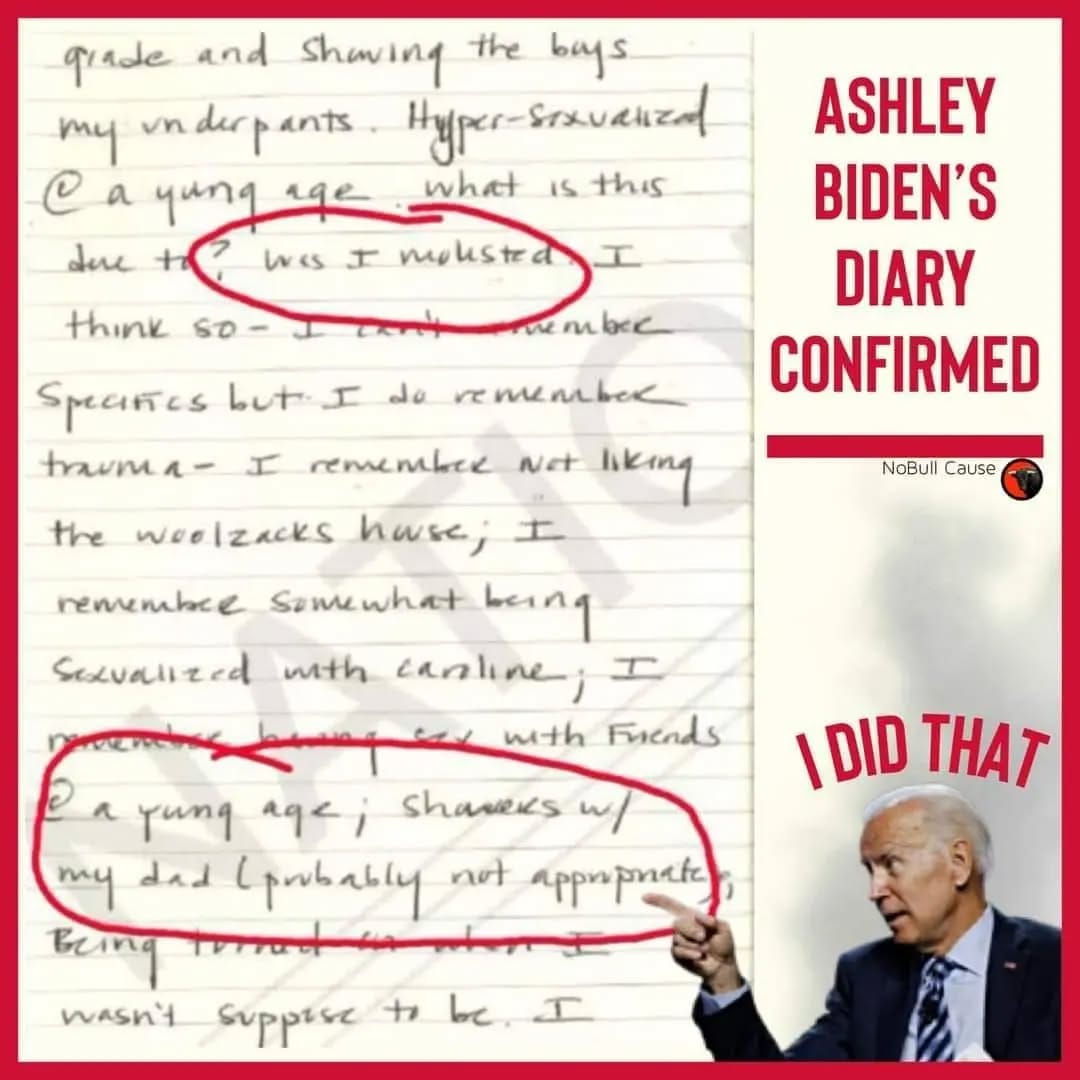 grade and showing the boys
my underpants. Hyper-sexualized
@ a yung age. what is this
due to? Was I molested. I
think so - I can't remember
specifics but I do remember
trauma - I remember not liking
the woolzacks house; I
remember somewhat being
sexualized with caroline; I
remember having sex with Friends
@ a yung age; showers w/
my dad (probably not appropriate),
Being turned on when I
wasn't suppose to be. I
NATIO
ASHLEY
BIDEN'S
DIARY
CONFIRMED
NoBull Cause
I DID THAT